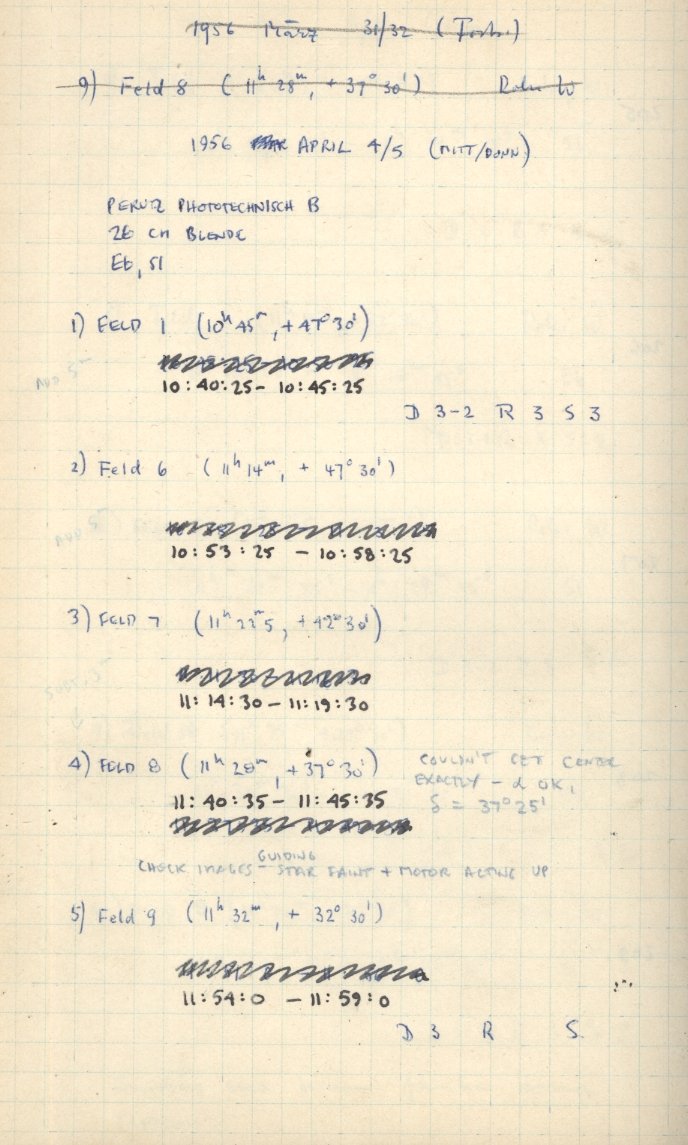 1956 März 31/32 (
9) Feld 8 ( 11ʰ 28ᵐ, + 37° 30')
1956 APRIL 4/5 (MITT/DONN)
PERUTZ PHOTOTECHNISCH B
26 CM BLENDE
Et, 51
1) FELD 1 (10ʰ 45ᵐ, +47° 30')
10:40:25 - 10:45:25
D 3-2 R 3 S 3
2) Feld 6 ( 11ʰ 14ᵐ, + 47° 30')
10:53:25 - 10:58:25
3) FELD 7 (11ʰ 22ᵐ5, +42° 30')
11:14:30 - 11:19:30
4) FELD 8 (11ʰ 28ᵐ, +37° 30')
COULDN'T GET CENTER
EXACTLY - α OK,
δ = 37° 25'
11:40:35 - 11:45:35
CHECK IMAGES - GUIDING STAR FAINT + MOTOR ACTING UP
5) Feld 9 (11ʰ 32ᵐ, + 32° 30')
11:54:0 - 11:59:0
D 3 R S